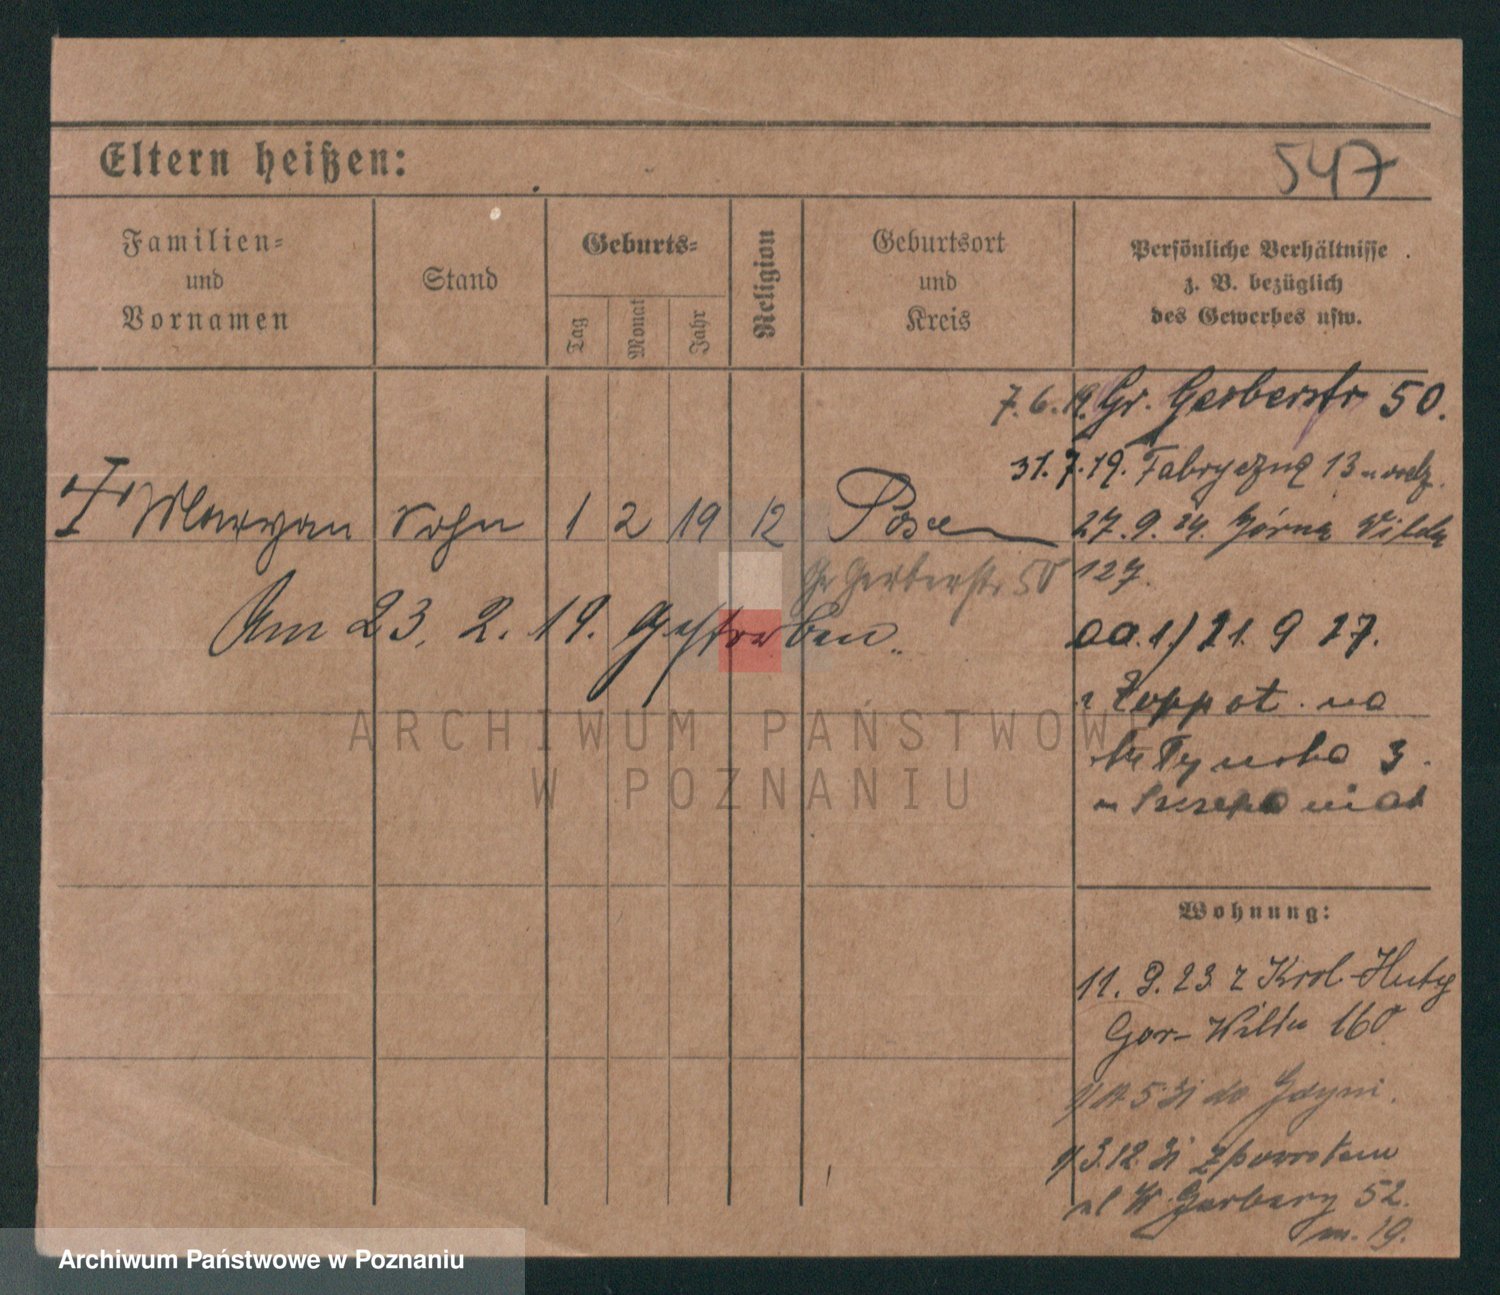 Eltern heißen:
547
Familien-
und
Vornamen
Stand
Geburts-
Tag
Monat
Jahr
Religion
Geburtsort
und
Kreis
Persönliche Verhältnisse
z. B. bezüglich
des Gewerbes usw.
7. 6. 19. Gr. Gerberstr 50.
31. 7. 19. Fabryczna 13
Maryan Sohn 1 2 19 12 Posen
27. 9. 24. Górna Wilda
127.
Gr Gerberstr 50
Am 23. 2. 19. Gestorben.
21. 9 27.
z Zoppot na
3.
ARCHIWUM PAŃSTWOWE
W POZNANIU
Wohnung:
11. 9. 23 z Król. Huty
Gór- Wilda 160
5 31 do Gdyni.
3.12. 31 z powrotem
ul W. Garbary 52.
m. 19.
Archiwum Państwowe w Poznaniu